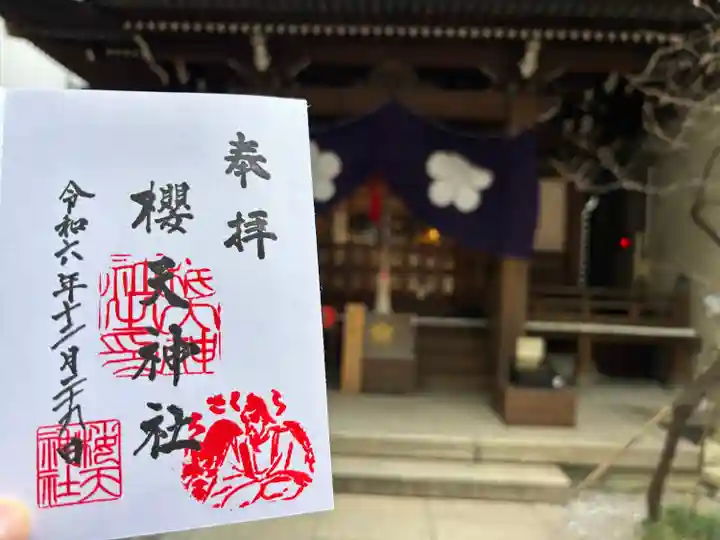 奉拝
櫻天神社
令和六年十二月二十九日
さくら
桜天神社